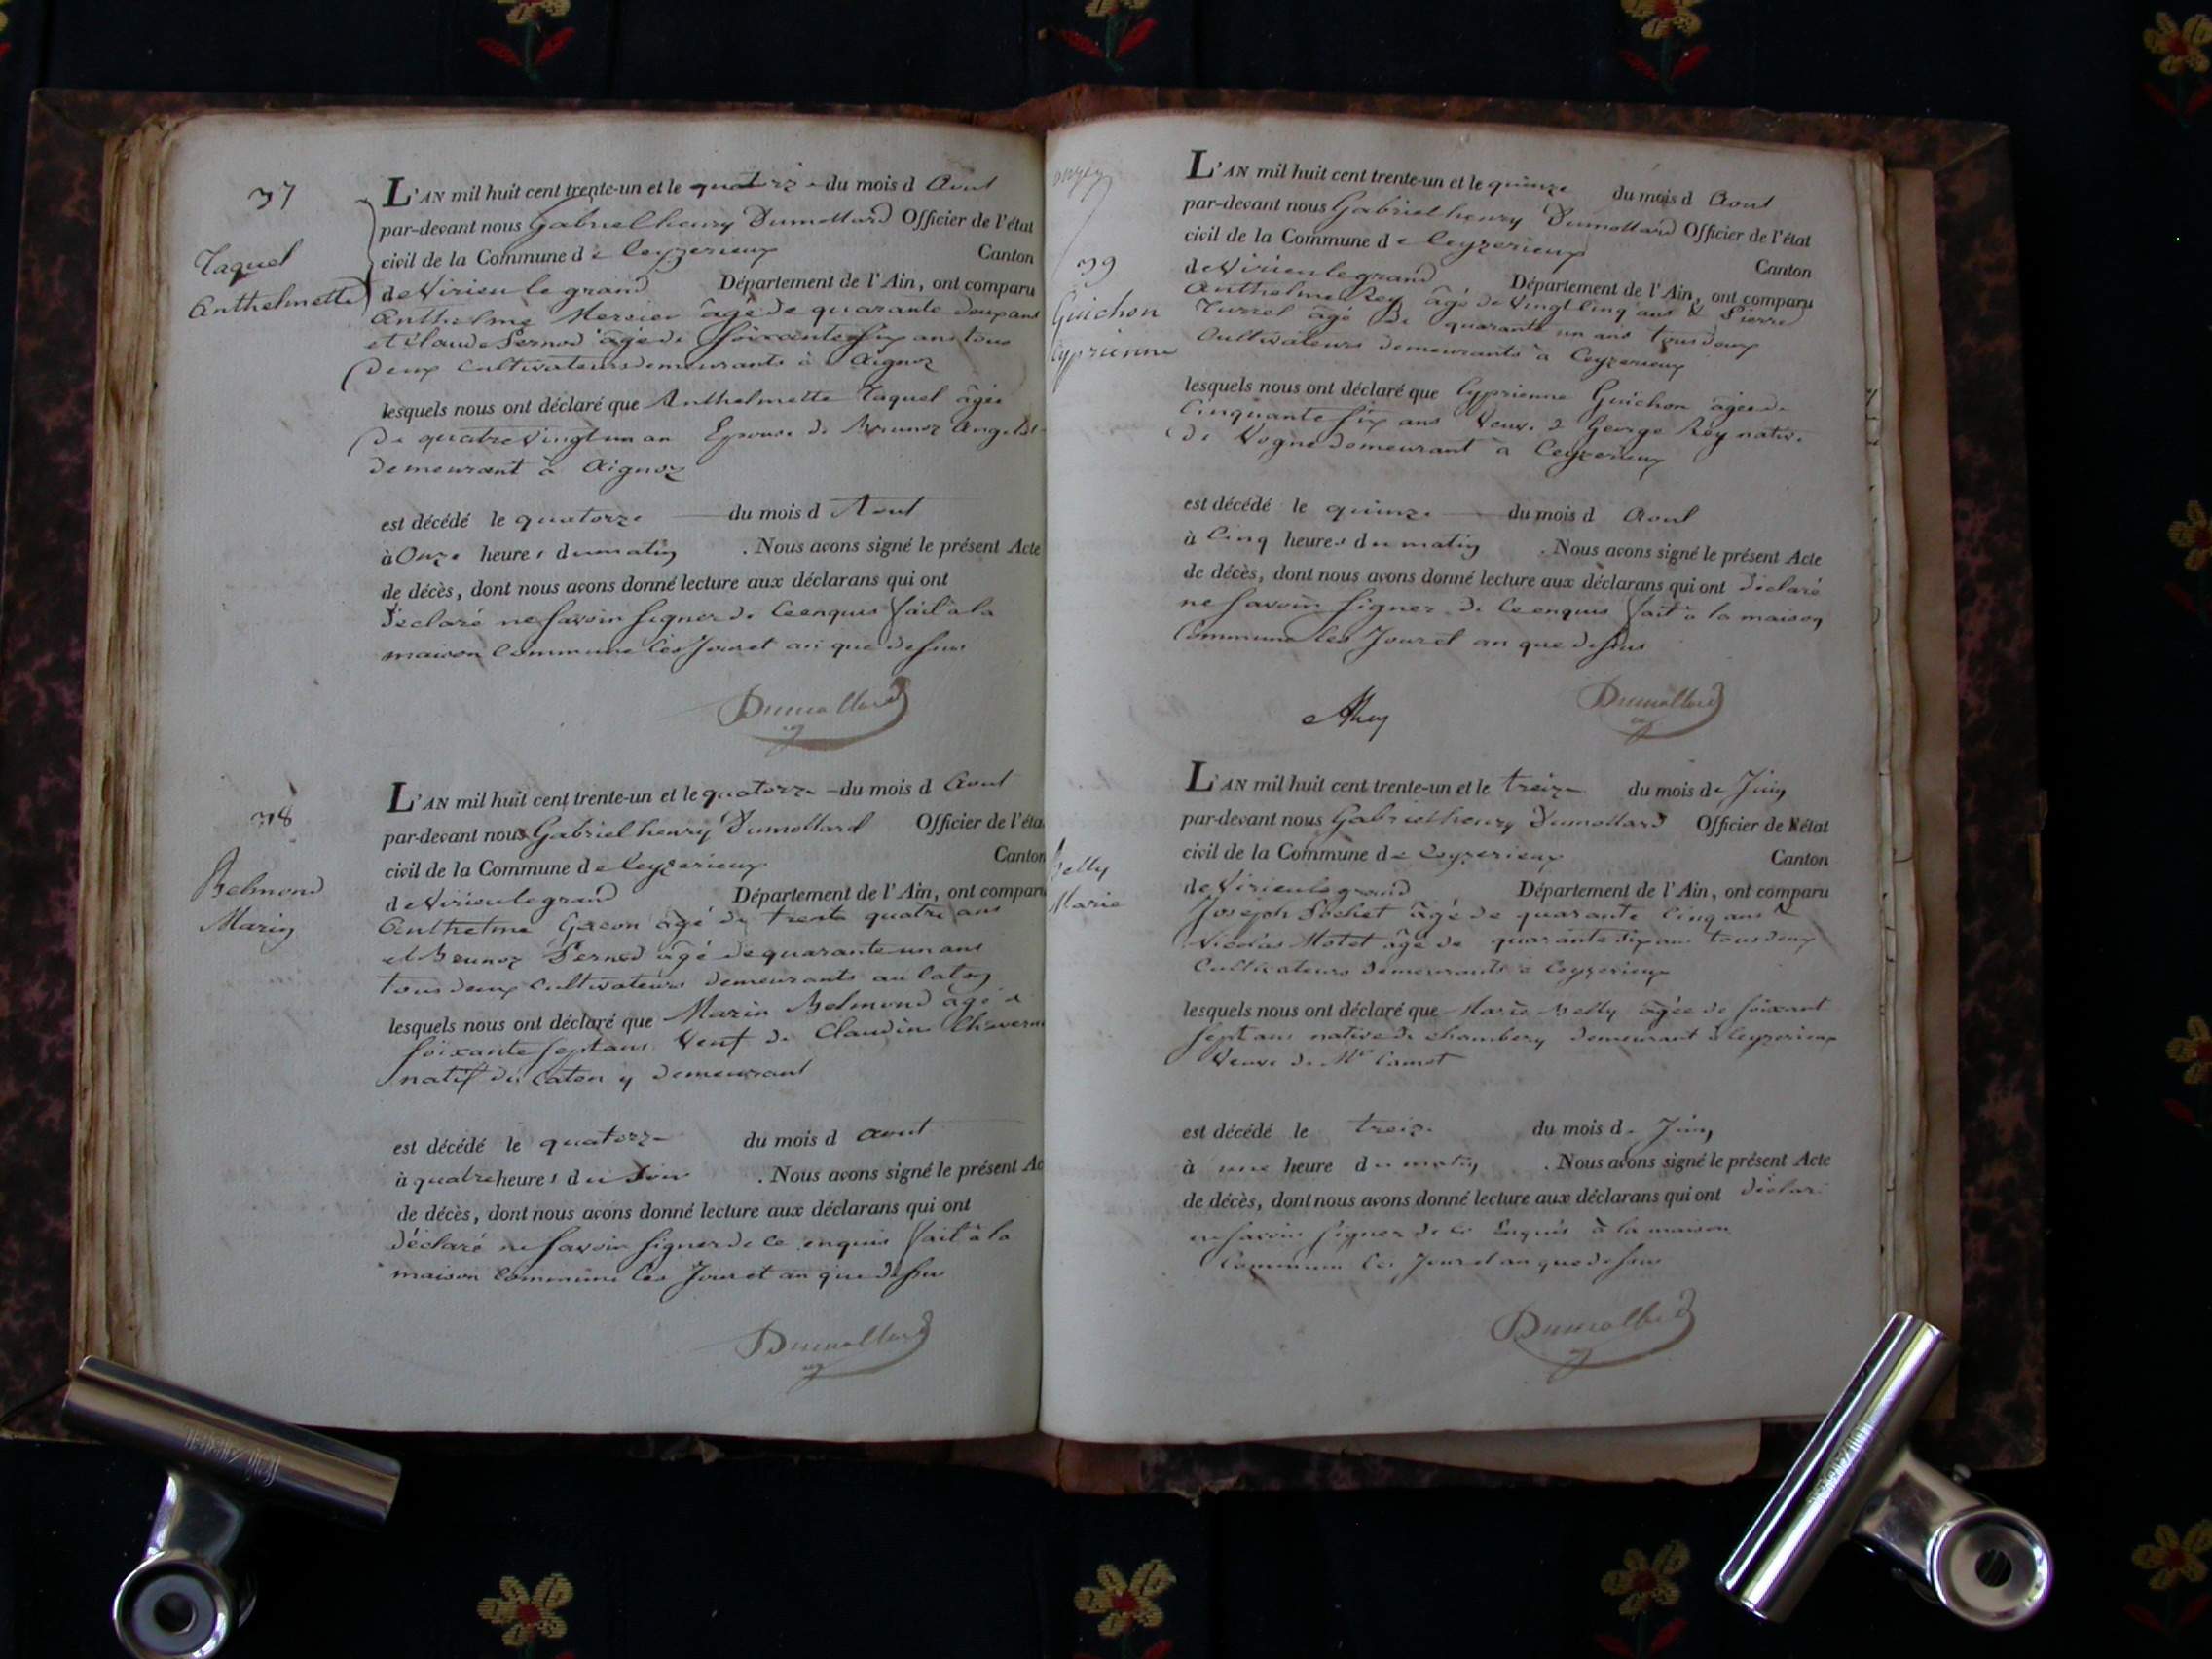 37
Taquel
Anthelmette
L'AN mil huit cent trente-un et le quatorze du mois d Aout
par-devant nous Gabriel henry Dumollard Officier de l'état
civil de la Commune d e Ceyzerieux Canton
de Virieu le grand Département de l'Ain, ont comparu
Anthelme Mercier âgé de quarante deux ans
et Claude Pernod âgé de soixante six ans tous
deux Cultivateurs demeurants à Aignoz
lesquels nous ont déclaré que Anthelmette Taquel âgée
de quatre vingt un an Epouse de Brunoz
demeurant à Aignoz
est décédé le quatorze du mois d Aout
à Onze heures du matin . Nous avons signé le présent Acte
de décès, dont nous avons donné lecture aux déclarans qui ont
déclaré ne savoir signer de Ce enquis fait à la
maison Commune les Jour et an que dessus
Dumollard
38
Belmond
Marin
L'AN mil huit cent trente-un et le quatorze du mois d Aout
par-devant nous Gabriel henry Dumollard Officier de l'éta
civil de la Commune d e Ceyzerieux Canton
de Virieu le grand Département de l'Ain, ont comparu
Anthelme Gacon âgé de trente quatre ans
et Brunoz Pernod âgé de quarante un ans
tous deux Cultivateurs demeurants au Caton
lesquels nous ont déclaré que Marin Belmond âgé d
soixante sept ans Veuf de Claudine
natif du Caton y demeurant
est décédé le quatorze du mois d aout
à quatre heures du Soir . Nous avons signé le présent Ac
de décès, dont nous avons donné lecture aux déclarans qui ont
déclaré ne savoir signer de Ce enquis fait à la
maison Commune les Jour et an que dessus
Dumollard
39
Guichon
Cyprienne
L'AN mil huit cent trente-un et le quinze du mois d Aout
par-devant nous Gabriel henry Dumollard Officier de l'état
civil de la Commune d e Ceyzerieux Canton
de Virieu le grand Département de l'Ain, ont comparu
Anthelme Rey âgé de Vingt Cinq ans & Pierre
Turrel âgé de quarante un ans tous deux
Cultivateurs demeurants à Ceyzerieux
lesquels nous ont déclaré que Cyprienne Guichon âgée de
Cinquante six ans Veuve de George Rey native
de Vogne demeurant à Ceyzerieux
est décédé le quinze du mois d Aout
à Cinq heures du matin . Nous avons signé le présent Acte
de décès, dont nous avons donné lecture aux déclarans qui ont déclaré
ne savoir signer de Ce enquis fait à la maison
Commune les Jour et an que dessus
ARey Dumollard
Belly
Marie
L'AN mil huit cent trente-un et le treize du mois de Juin
par-devant nous Gabriel henry Dumollard Officier de l'état
civil de la Commune d e Ceyzerieux Canton
de Virieu le grand Département de l'Ain, ont comparu
Joseph Pochet âgé de quarante Cinq ans &
Nicolas Motet âgé de quarante six ans tous deux
Cultivateurs demeurants à Ceyzerieux
lesquels nous ont déclaré que Marie Belly âgée de soixant
sept ans native de Chambery demeurant à Ceyzerieux
Veuve de Mr Camot
est décédé le treize du mois de Juin
à une heure du matin . Nous avons signé le présent Acte
de décès, dont nous avons donné lecture aux déclarans qui ont déclaré
ne savoir signer de Ce Enquis à la maison
Commune les Jour et an que dessus
Dumollard